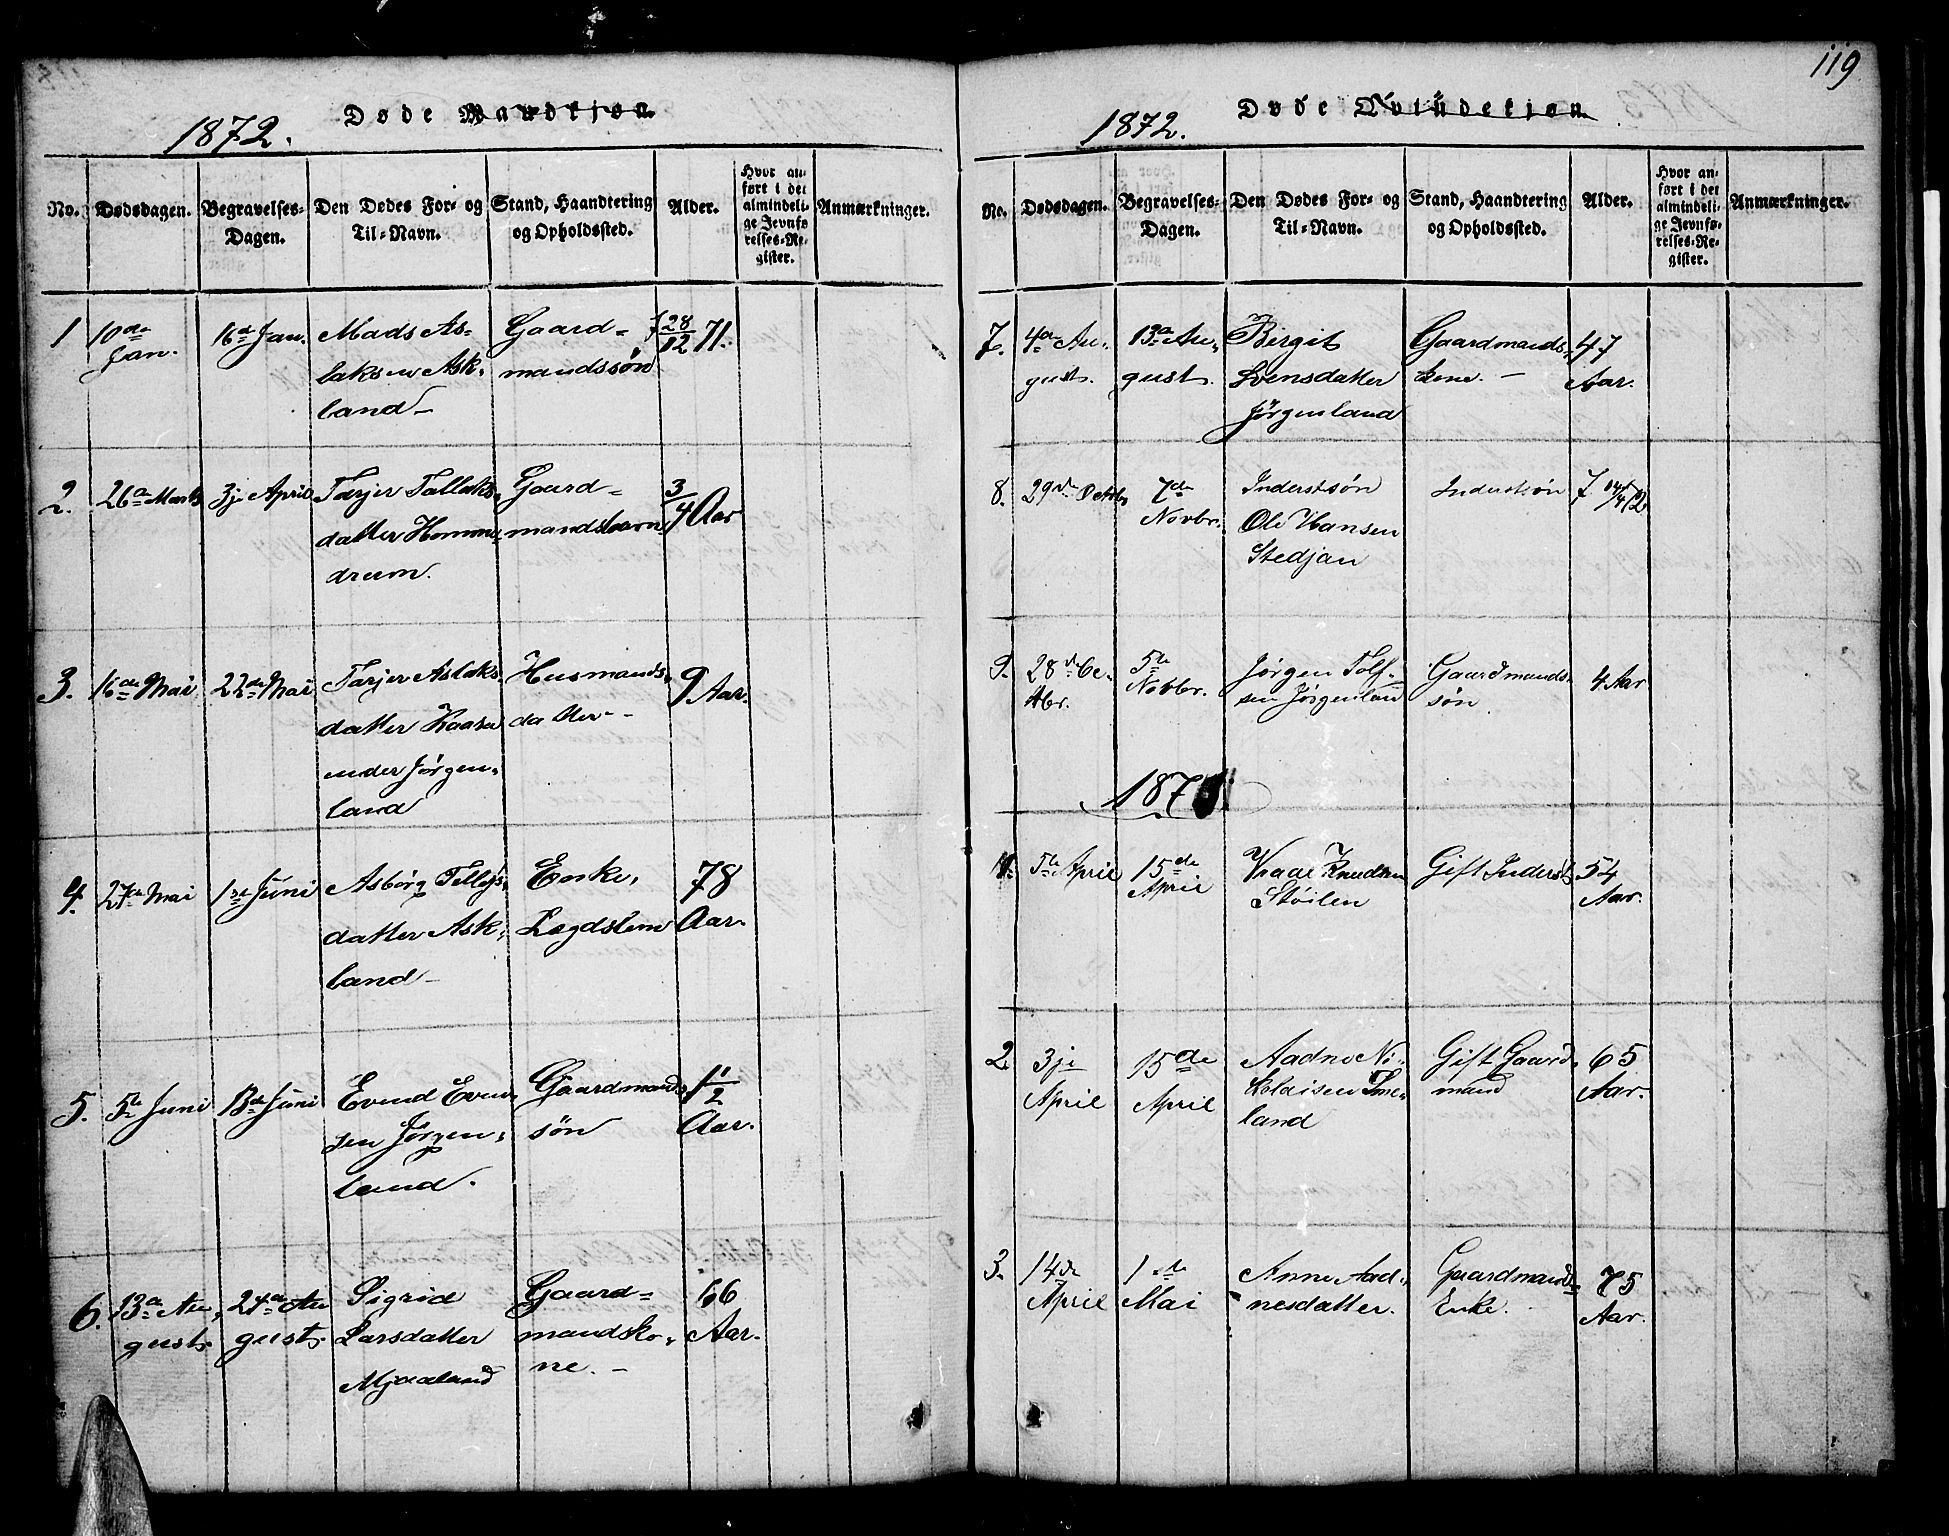 119
1872. Døde Mandkjøn.
No. Dødsdagen. Begravelses-Dagen. Den Dødes For- og Til-Navn. Stand, Haandtering og Opholdssted. Alder. Hvor anført i det almindelige Jevnførelses-Register. Anmærkninger.
1 10de Jan. 16de Jan. Mads As-
laksen Ask-
land Gaard-
mandssøn f 28/12 71.
2. 26de Marts 3je April Tarjer Tallaks-
datter Homme-
drum. Gaard-
mandsbarn 3/4 Aar
3. 16de Mai 22de Mai Tarjer Aslaks-
datter
under Jørgen-
land Husmands-
datter 9 Aar.
4. 27de Mai 1ste Juni Asbørg Tellefs-
datter Ask-
land Enke,
Lægdslem 78
Aar.
5. 5te Juni 13de Juni Evend Even-
sen Jørgen-
land. Gaardmands-
søn 1 1/2
Aar.
6. 13de Au-
gust. 24de Au-
gust. Sigrid
Larsdatter
Mjaaland Gaard-
mandsko-
ne. 66
Aar.
1872. Døde Qvindekjøn.
No. Dødsdagen. Begravelses-Dagen. Den Dødes For- og Til-Navn. Stand, Haandtering og Opholdssted. Alder. Hvor anført i det almindelige Jevnførelses-Register. Anmærkninger.
7. 4de Au-
gust. 13de Au-
gust. Birgit
Svensdatter
Jørgenland Gaardmands-
kone. 47
Aar.
8. 29de Octbr. 7de
Novbr. Inderstsøn
Ole Hansen
Stedjan Inderstsøn
9. 28de Oc-
tbr. 5te
Novbr. Jørgen Tolf-
sen Jørgenland Gaardmands-
søn. 4 Aar
187
1. 5te April 15de
April Knudsen
Støilen Gift Inderst 54
Aar.
2 3je
April 15de
April Aadne Ni-
kolaisen
land Gift Gaard-
mand 65
Aar.
3. 14de
April 1ste
Mai Anne Aad-
nesdatter. Gaardmands
Enke. 75
Aar.